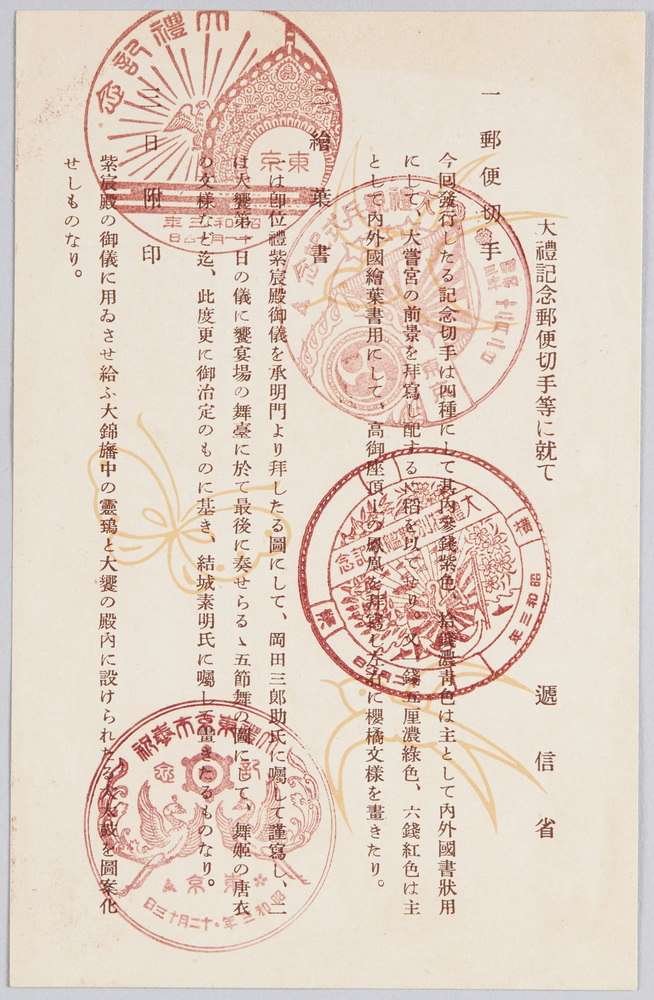 大禮記念郵便切手等に就て
遞信省
一 郵便切手
今回發行したる記念切手は四種にして其内參錢紫色、拾錢濃靑色は主として内外國書狀用
にして、大嘗宮の前景を拜寫し配するに稻を以てせり。又一錢五厘濃綠色、六錢紅色は主
として内外國繪葉書用にして、高御座頂上の鳳凰を拜寫し左右に櫻橘文樣を畫きたり。
二 繪葉書
一は卽位禮紫宸殿御儀を承明門より拜したる圖にして、岡田三郎助氏に囑して謹寫し、二
は大饗第一日の儀に饗宴場の舞臺に於て最後に奏せらるゝ五節舞の圖にて、舞姬の唐衣
の文樣など迄、此度更に御治定のものに基き、結城素明氏に囑して畫きたるものなり。
三 日附印
紫宸殿の御儀に用ゐさせ給ふ大錦旛中の靈鵄と大饗の殿内に設けられたる大太鼓を圖案化
せしものなり。
大禮記念
東京
昭和三年
十一月
日
大禮
記念
昭和三年
十二月二日
東京
大禮特別觀艦式記念
橫
濱
昭和三年
大禮東京市奉祝
記念
東京
昭和三年・十二月十三日